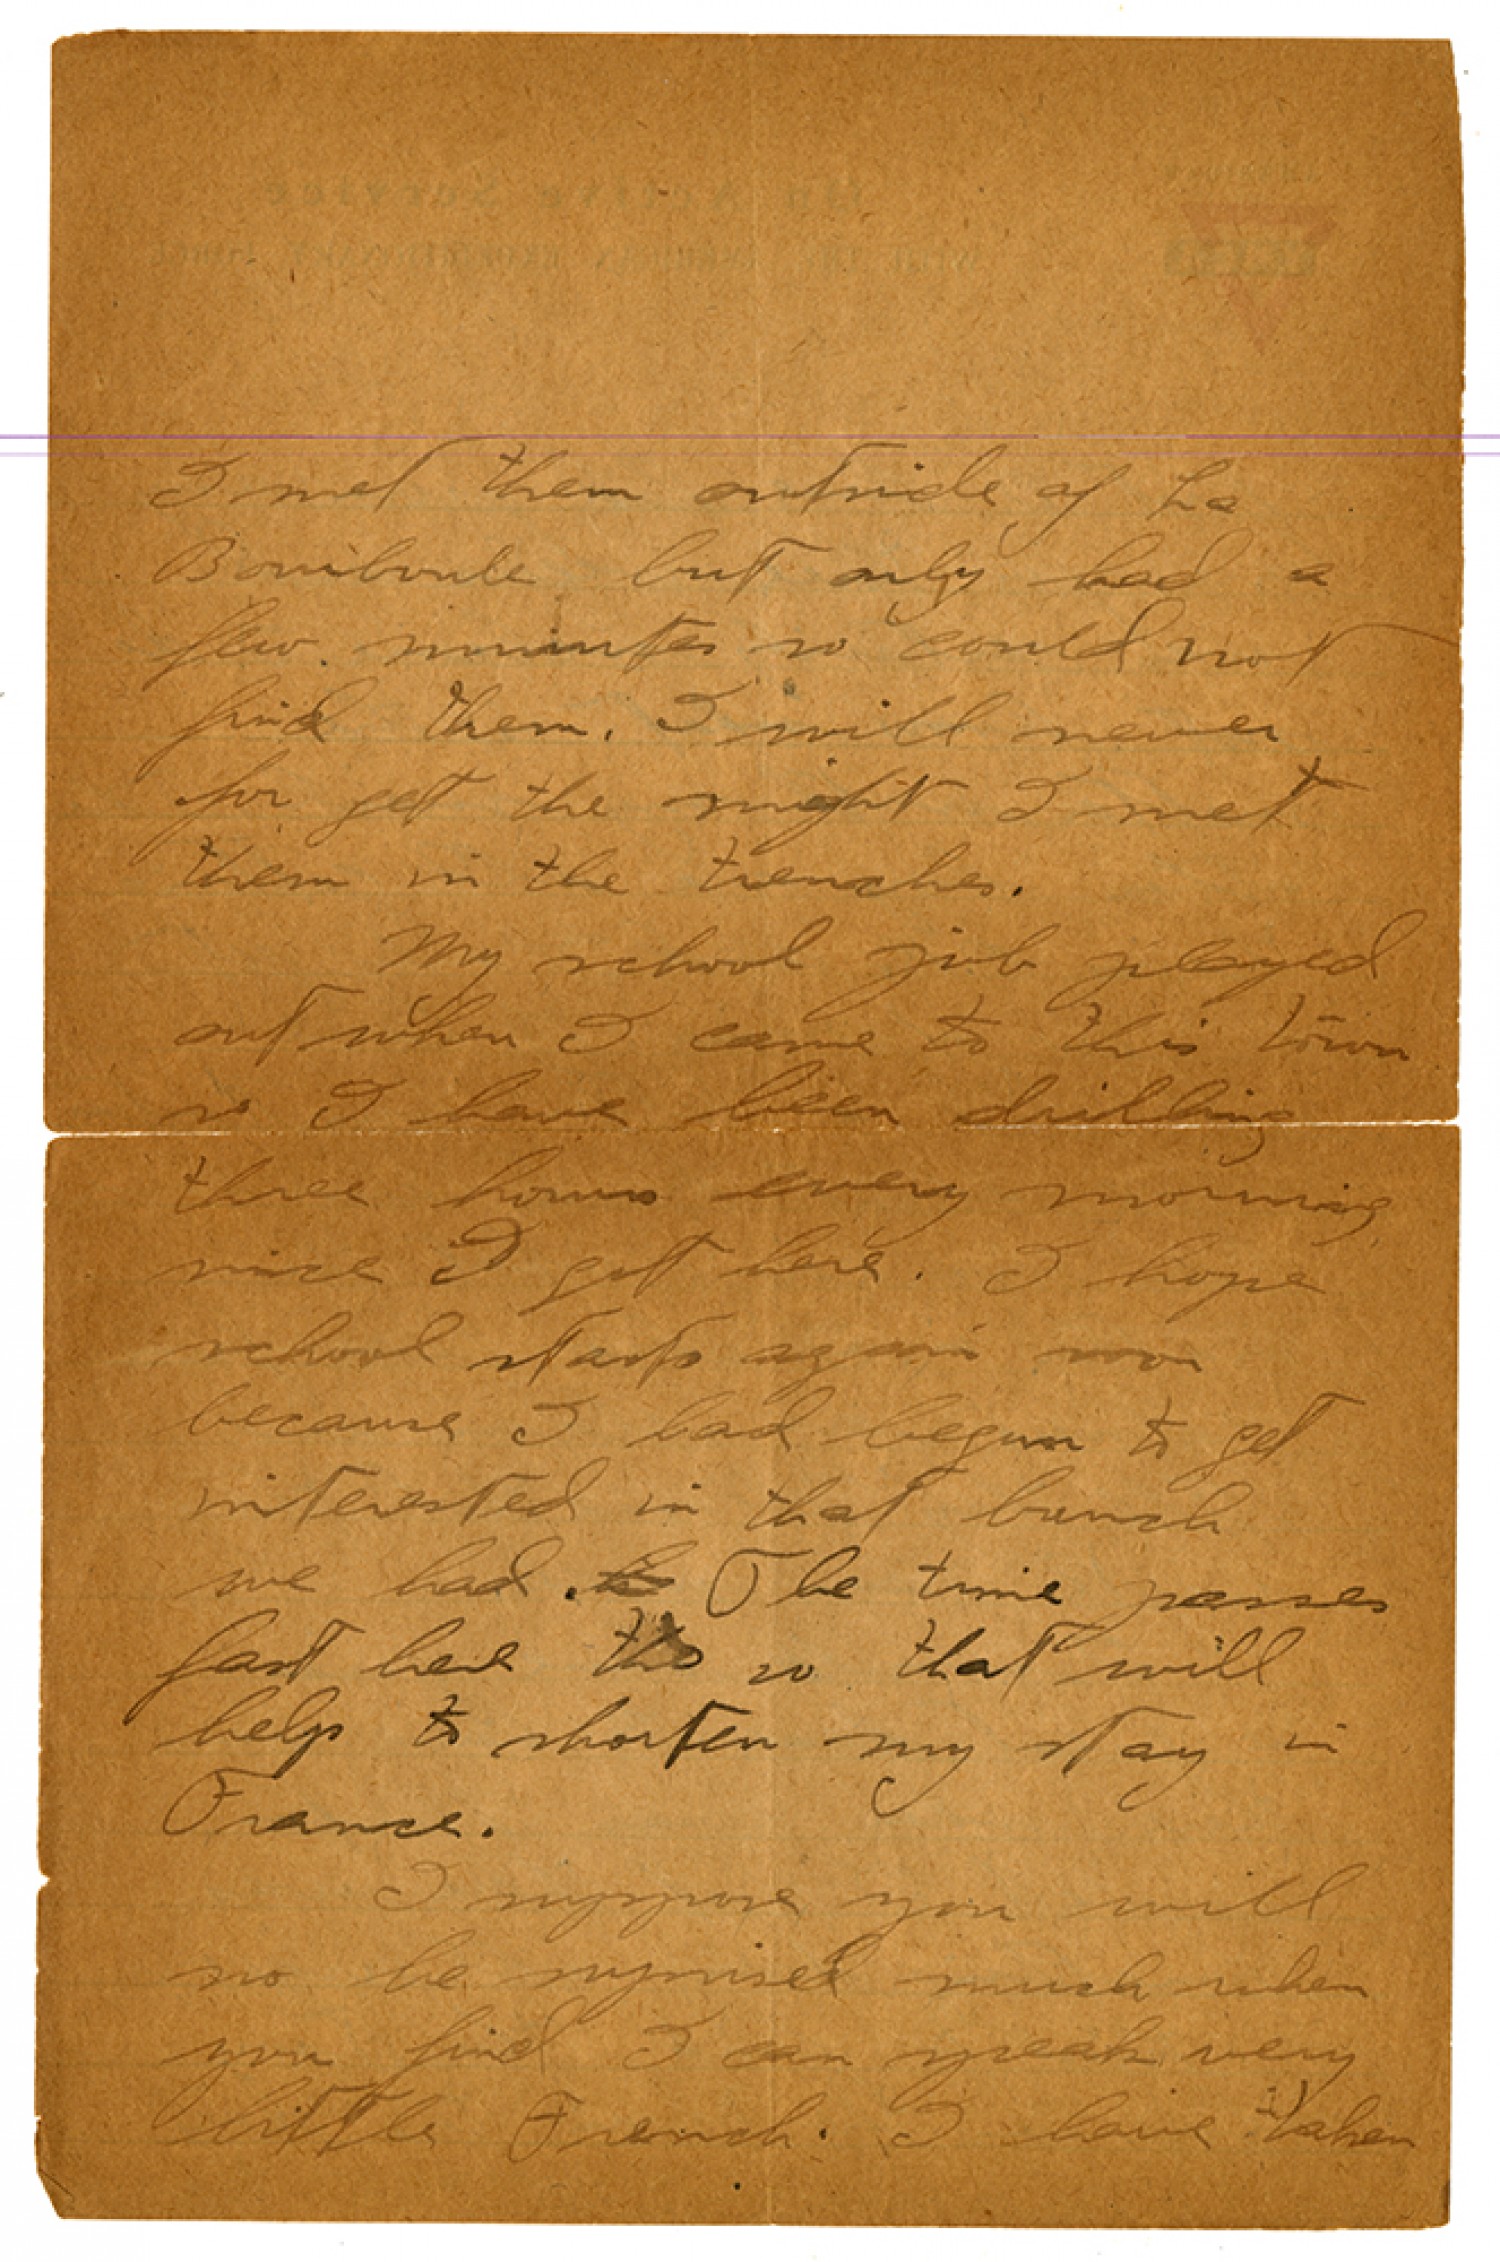 I met them outside of La
Bouiboule but only had a
few minutes so could not
find them. I will never
for get the night I met
them in the trenches.
My school job played
out when I came to this town
so I have been drilling
three hours every morning
since I got here. I hope
school starts again soon
because I had begun to get
interested in that bunch
we had. The time passes
fast here tho so that will
help to shorten my stay in
France.
I suppose you will
no be suprised much when
you find I can speak very
little French. I have taken